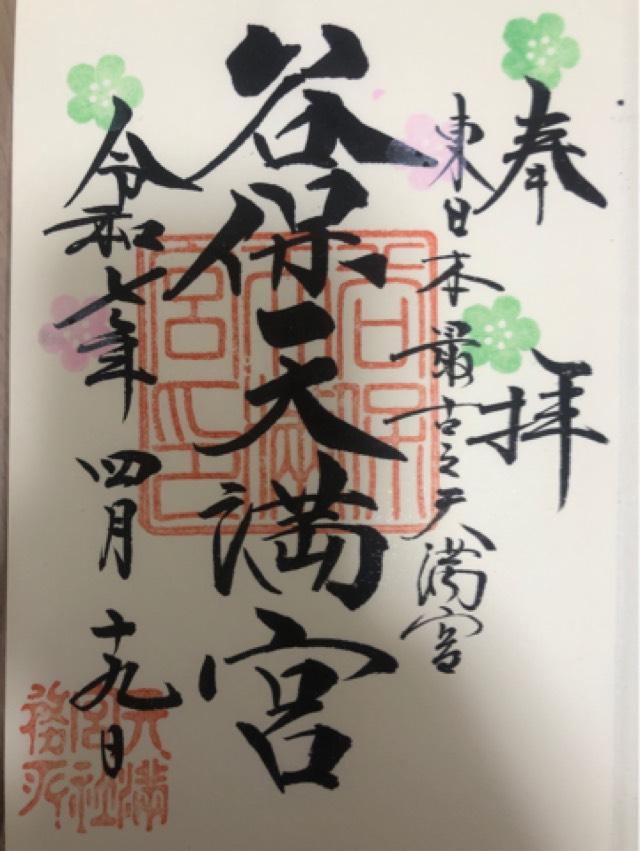 奉拝
東日本最古之天満宮
谷保天満宮
令和七年四月十九日
谷保天満宮印
天満宮社務所